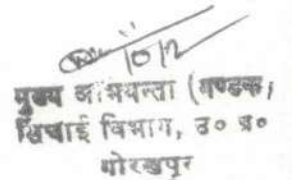 10/2
मुख्य अभियन्ता (गण्डक)
सिंचाई विभाग, उ० प्र०
गोरखपुर